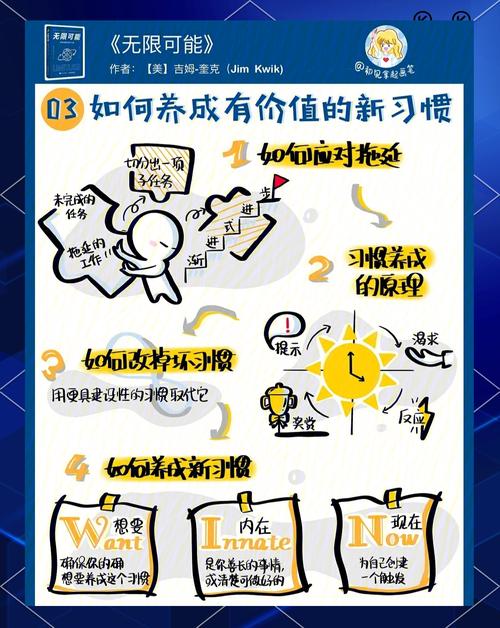 无限可能
《无限可能》
作者:【美】吉姆-奎克 (Jim Kwik)
@初见拿起画笔
03 如何养成有价值的新习惯
1 如何应对拖延
切分出一项
子任务
未完成的
任务
拖延的
工作
渐
进
式
进
步
2 习惯养成
的原理
提示
渴求
反应
奖赏
3 如何改掉坏习惯
用更具建设性的习惯取代它
4 如何养成新习惯
Want 想要
确保你的确
想要养成这个习惯
Innate 内在
是你善长的事情,
或清楚可做好的
Now 现在
为自己创建
一个触发